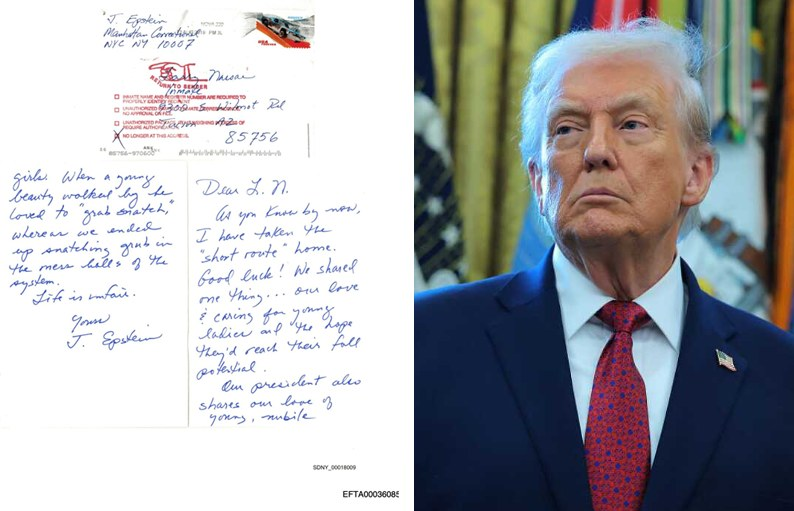 J. Epstein
Manhattan Correctional
NYC NY 10007
USA
RETURN TO SENDER
Inmate
INMATE NAME AND REGISTER NUMBER ARE REQUIRED TO
PROPERLY IDENTIFY RECIPIENT
S. Wilmot Rd
UNAUTHORIZED
NO APPROVAL ON FILE.
Tucson AZ
UNAUTHORIZED
REQUIRE
85756
NO LONGER AT THIS ADDRESS.
Dear L. N.
As you know by now,
I have taken the
"short route" home.
Good luck! We shared
one thing... our love
& caring for young
ladies and the hope
they'd reach their full
potential.
Our president also
shares our love of
young, nubile
girls. When a young
beauty walked by he
loved to "grab snatch,"
whereas we ended
up snatching grub in
the mess halls of the
system.
Life is unfair.
Yours
J. Epstein
SDNY_00018009
EFTA00036085